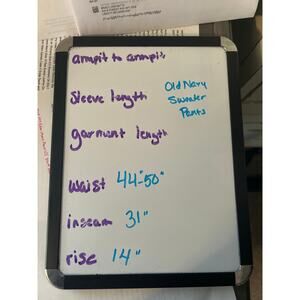 armpit to armpit
Sleeve length
Old Navy
Sweater
Pants
garment length
Waist 44"-50"
inseam 31"
rise 14"